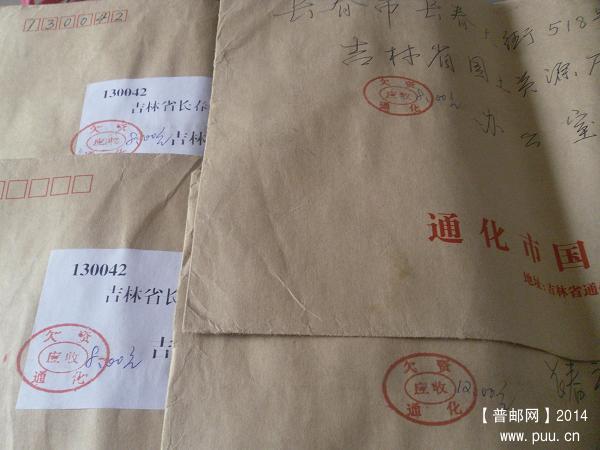 730042
130042
吉林省长春
欠资
应收 8.00元
通化
吉林
长春市长春大街518号
吉林省国土资源厅
办公室
欠资
应收 8.00元
通化
通化市国
地址:吉林省通
130042
吉林省长
欠资
应收 8.00元
通化
吉
欠资
应收 12.00元
通化
【普邮网】2014
www.puu.cn